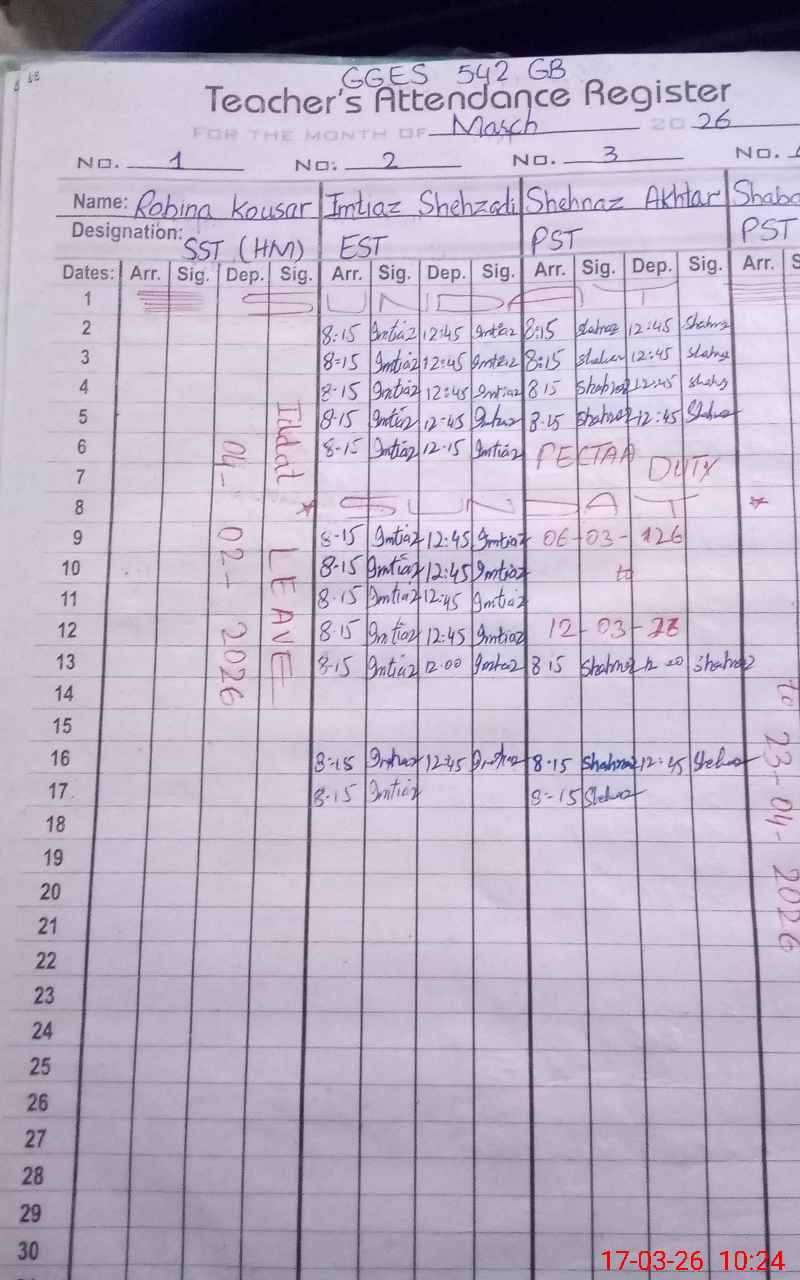 GGES 542 GB
Teacher's Attendance Register
FOR THE MONTH OF March 20 26
No. 1 No: 2 No. 3 No.
Name: Robina Kousar Imtiaz Shehzadi Shehnaz Akhtar Shaba
Designation: SST (HM) EST PST PST
Dates: Arr. Sig. Dep. Sig. Arr. Sig. Dep. Sig. Arr. Sig. Dep. Sig. Arr. S
1 SUNDAY
2 8:15 Imtiaz 12:45 Imtiaz 8:15 Shahnaz 12:45 Shahnaz
3 8:15 Imtiaz 12:45 Imtiaz 8:15 12:45
4 8-15 Imtiaz 12:45 Imtiaz 8 15 Shahnaz 12:45
5 8-15 Imtiaz 12:45 Imtiaz 8.15 Shahnaz 12:45
6 8-15 Imtiaz 12-15 Imtiaz PECTAA DUTY
7
8 * SUNDAY *
9 8-15 Imtiaz 12:45 Imtiaz 06-03-
10 8-15 Imtiaz 12:45 Imtiaz to
11 8-15 Imtiaz 12:45 Imtiaz
12 8.15 Imtiaz 12:45 Imtiaz 12-03-
13 8-15 Imtiaz 12.00 Imtiaz 8 15 Shahnaz Shahnaz
14
15
16 8:15 12:45 8-15 Shahnaz 12:45
17 8-15 Imtiaz 8-15
18
19
20
21
22
23
24
25
26
27
28
29
30
Iddat LEAVE
04-02-2026
to 23-04-2026
17-03-26 10:24